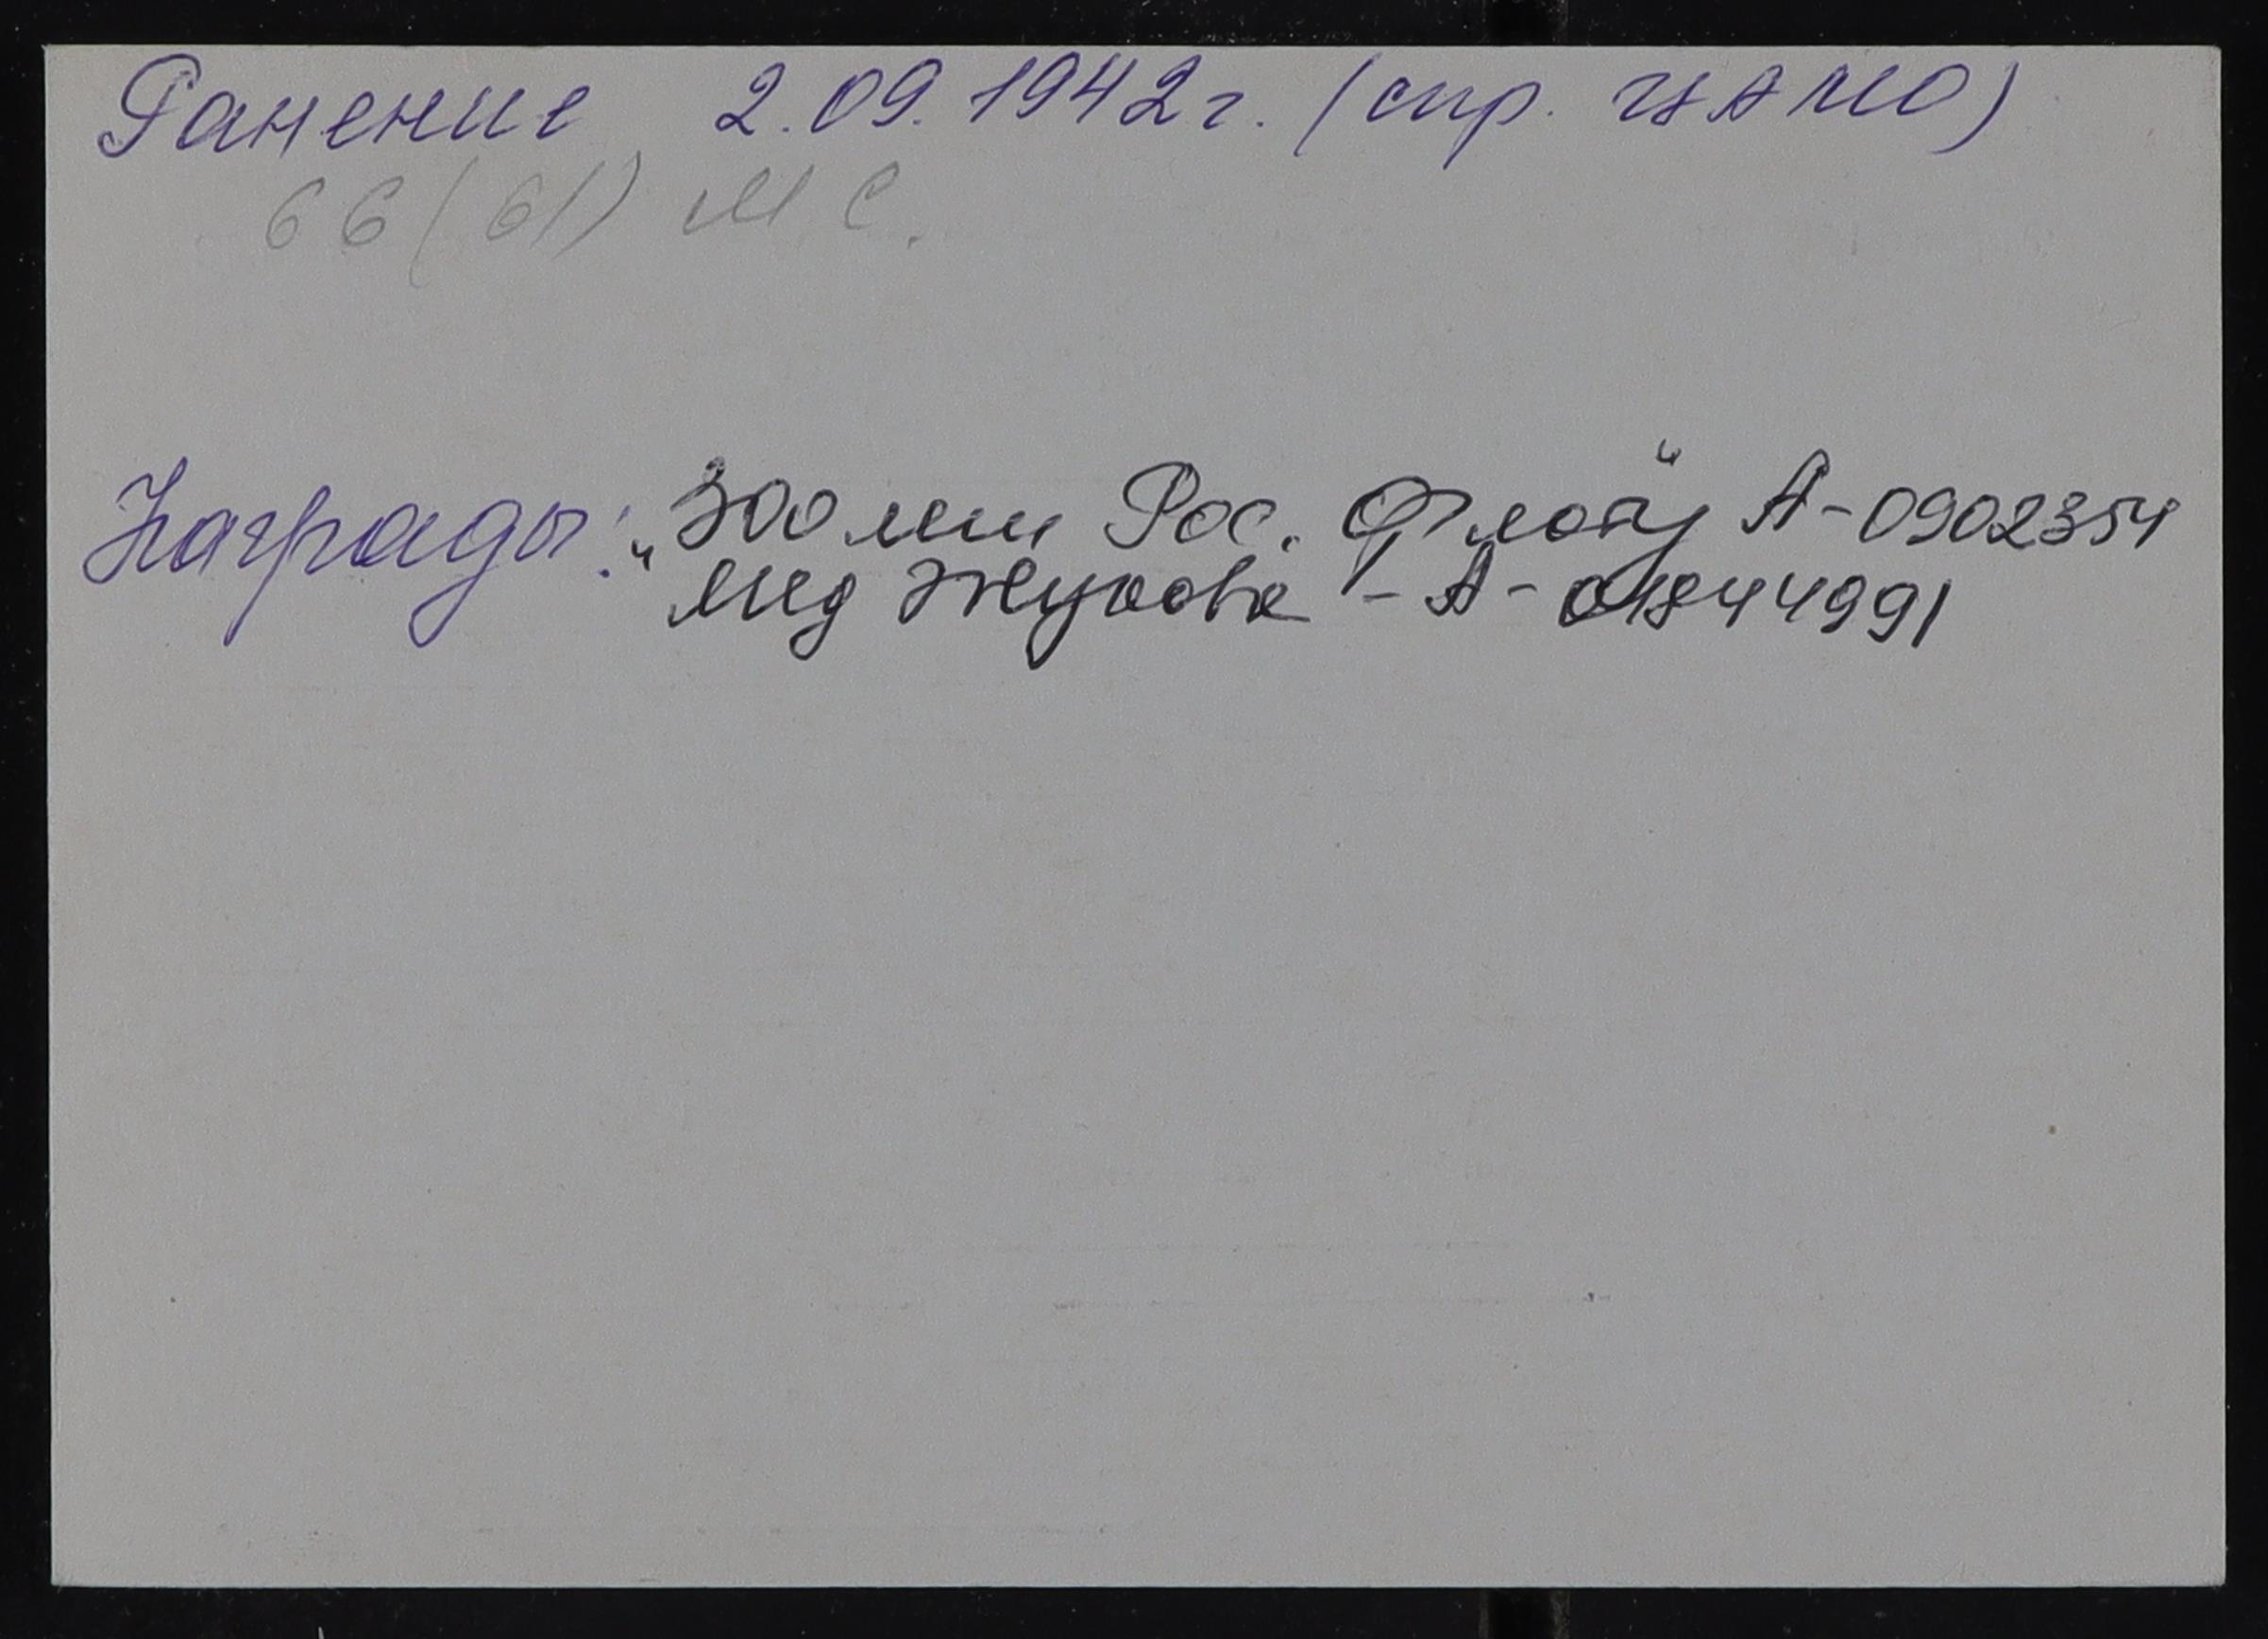 Ранение 2.09.1942г. (спр. ЦАМО)
66 (61) М С.
Награды: "300 лет Рос. Флоту" А-0902354
Мед Жукова - А - 01844991